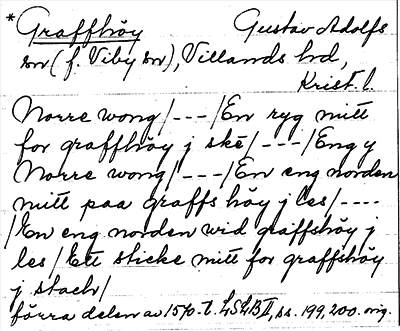 *Graffhöy Gustav Adolfs
sn (f. Viby sn), Villands hd,
Krist. l.
Norre wong/---/En ryg mitt
for graffhöy j ske/---/Eng y
Norre wong/---/En eng norden
mitt paa graffs höy j les/----
/En eng norden wid graffshöy j
les/Ett sticke mitt for graffshöy
j stach/
förra delen av 1570-t. LSLB II, ss. 199, 200. orig.